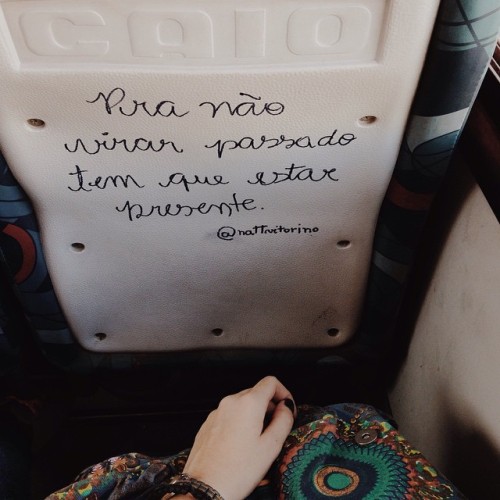 CAIO
Pra não
virar passado
tem que estar
presente.
@nattvitorino